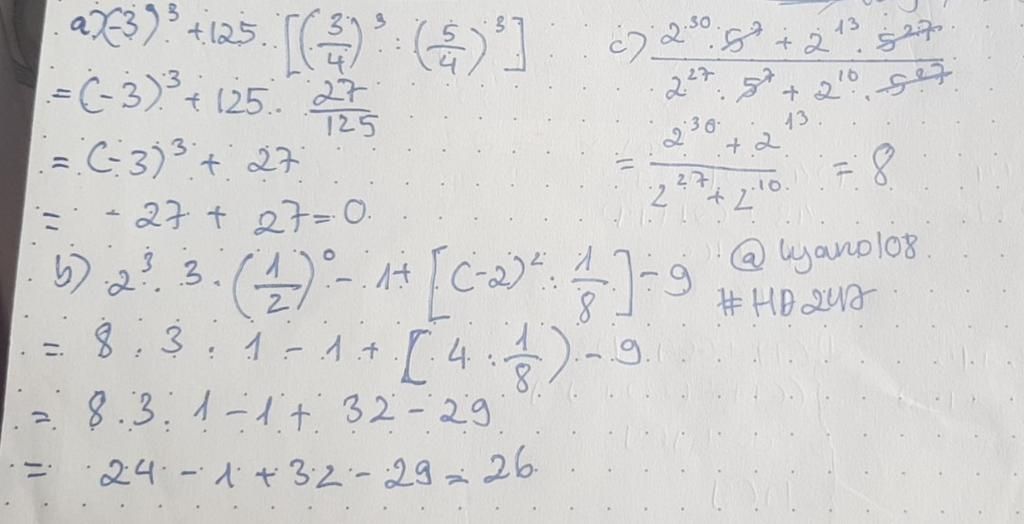 a) (-3)³ + 125 . [(3/4)³ : (5/4)³]
= (-3)³ + 125 . 27/125
= (-3)³ + 27
= - 27 + 27 = 0
b) 2³ . 3 . (1/2)⁰ - 1 + [(-2)² : 1/8] - 9
= 8 . 3 . 1 - 1 + [4 : 1/8) - 9
= 8 . 3 . 1 - 1 + 32 - 29
= 24 - 1 + 32 - 29 = 26
c) (2³⁰ . 5⁷ + 2¹³ . 5²⁷) / (2²⁷ . 5⁷ + 2¹⁰ . 5²⁷)
= (2³⁰ + 2¹³) / (2²⁷ + 2¹⁰) = 8